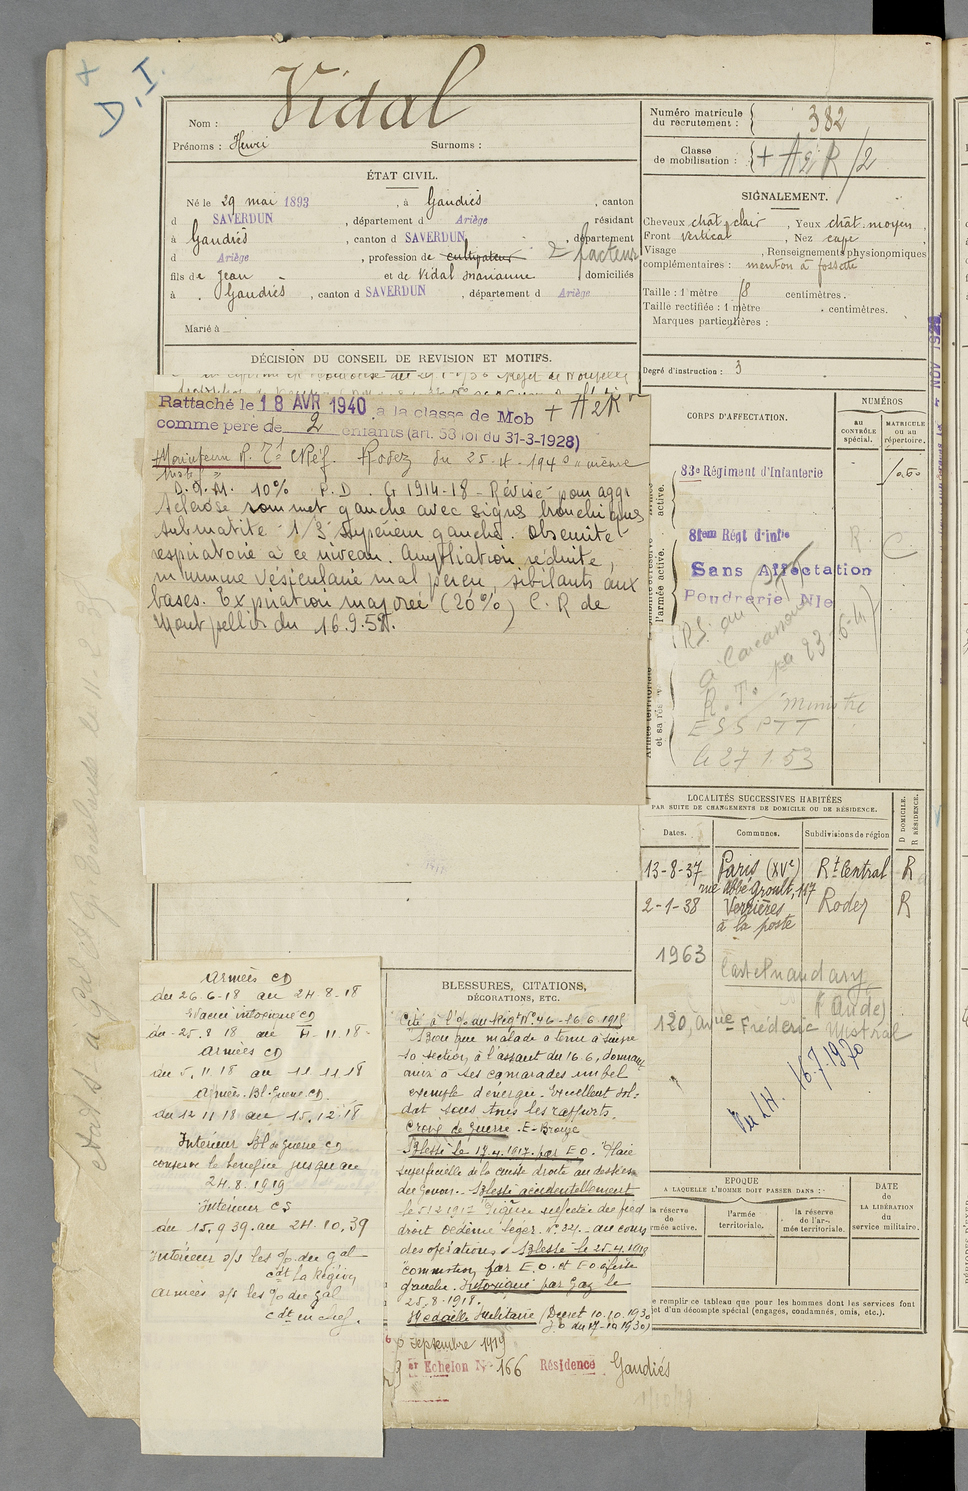 D.I.
Vidal
Nom :
Prénoms : Henri Surnoms :
ÉTAT CIVIL.
Né le 29 mai 1893 , à Gaudiès , canton
d SAVERDUN , département d Ariège , résidant
à Gaudiès , canton d SAVERDUN , département
d Ariège , profession de cultivateur 2 facteur
fils de Jean et de Vidal Marianne domiciliés
à Gaudiès , canton d SAVERDUN , département d Ariège
Marié à
DÉCISION DU CONSEIL DE REVISION ET MOTIFS.
Numéro matricule du recrutement : 382
Classe de mobilisation : + A 2 R /2
SIGNALEMENT.
Cheveux chat clair , Yeux chat. moyen ,
Front vertical , Nez cave
Visage , Renseignements physionomiques
complémentaires : menton à fossette
Taille : 1 mètre 78 centimètres.
Taille rectifiée : 1 mètre , centimètres.
Marques particulières :
Degré d'instruction : 3
Rattaché le 18 AVR 1940 à la classe de Mob + A 2 R
comme père de 2 enfants (art. 58 loi du 31-3-1928)
Rodez du 25-4-1940 même
10% P.D. G 1914-18 - Révisé pour aggr
sclérose sommet gauche avec signes bronchiques
submatité 1/3 supérieur gauche. Obscurité
respiratoire à ce niveau. Ampliation réduite,
murmure vésiculaire mal perçu, sibilants aux
bases. Expiration majorée (20%) C. R de
Montpellier du 16.9.54.
CORPS D'AFFECTATION.
NUMÉROS
au CONTRÔLE spécial.
MATRICULE ou au répertoire.
active.
83e Régiment d'Infanterie
l'armée active.
81em Régt d'infie
Sans Affectation
Poudrerie Nle
R. C
à Carcassonne
R.T. Ministre
E S S P T T
le 27 1 53
et sa
LOCALITÉS SUCCESSIVES HABITÉES
PAR SUITE DE CHANGEMENTS DE DOMICILE OU DE RÉSIDENCE.
Dates. Communes. Subdivisions de région
D DOMICILE. R RÉSIDENCE.
13-8-37 Paris (XVe) Rt Central R
rue Abbé Groult, 117
2-1-38 Verrières Rodez R
à la poste
1963 Castelnaudary
(Aude)
120, Avnue Frédéric Mistral
Vu LH. 16.7.1970
Armées CD
du 26-6-18 au 24-8-18
Evacué intoxiqué CD
du 25.8 18 au 4-11-18
Armées CD
du 5.11.18 au 11 11 18
Armées. Bl. Guerre CD
du 12 11 18 au 15.12.18
Intérieur Bl de guerre CD
conserve le bénéfice jusqu'au
24.8.1919
Intérieur CS
du 15.9 39 au 24.10.39
Intérieur s/s les %. du Gal
cdt la Région
Armées s/s les %. du Gal
cdt en chef.
BLESSURES, CITATIONS,
DÉCORATIONS, ETC.
Cité à l'%. du Régt N° 46 - 16-6-1918
Bien que malade a tenu à suivre
sa section à l'assaut du 16.6, donnant
ainsi à ses camarades un bel
exemple d'énergie. Excellent sol-
dat sous tous les rapports.
Croix de Guerre. E. Bronze
Blessé le 19.4.1917 par E O. Plaie
superficielle de la cuisse droite au dessus
du genou. Blessé accidentellement
le 5 12 1917 du pied
droit oedème léger. au cours
des opérations. Blessé le 25.4.1918
commotion par E. O.
gauche. Intoxiqué par Gaz le
25.8.1918.
Médaille Militaire (Décret 10.10.1930
J.O du 17-10 1930)
6 Septembre 1919
Echelon N° 166 Résidence Gaudiès
EPOQUE
A LAQUELLE L'HOMME DOIT PASSER DANS :
la réserve de l'armée active.
l'armée territoriale.
la réserve de l'armée territoriale.
DATE de LA LIBÉRATION du service militaire.
Ne remplir ce tableau que pour les hommes dont les services font
l'objet d'un décompte spécial (engagés, condamnés, omis, etc.).